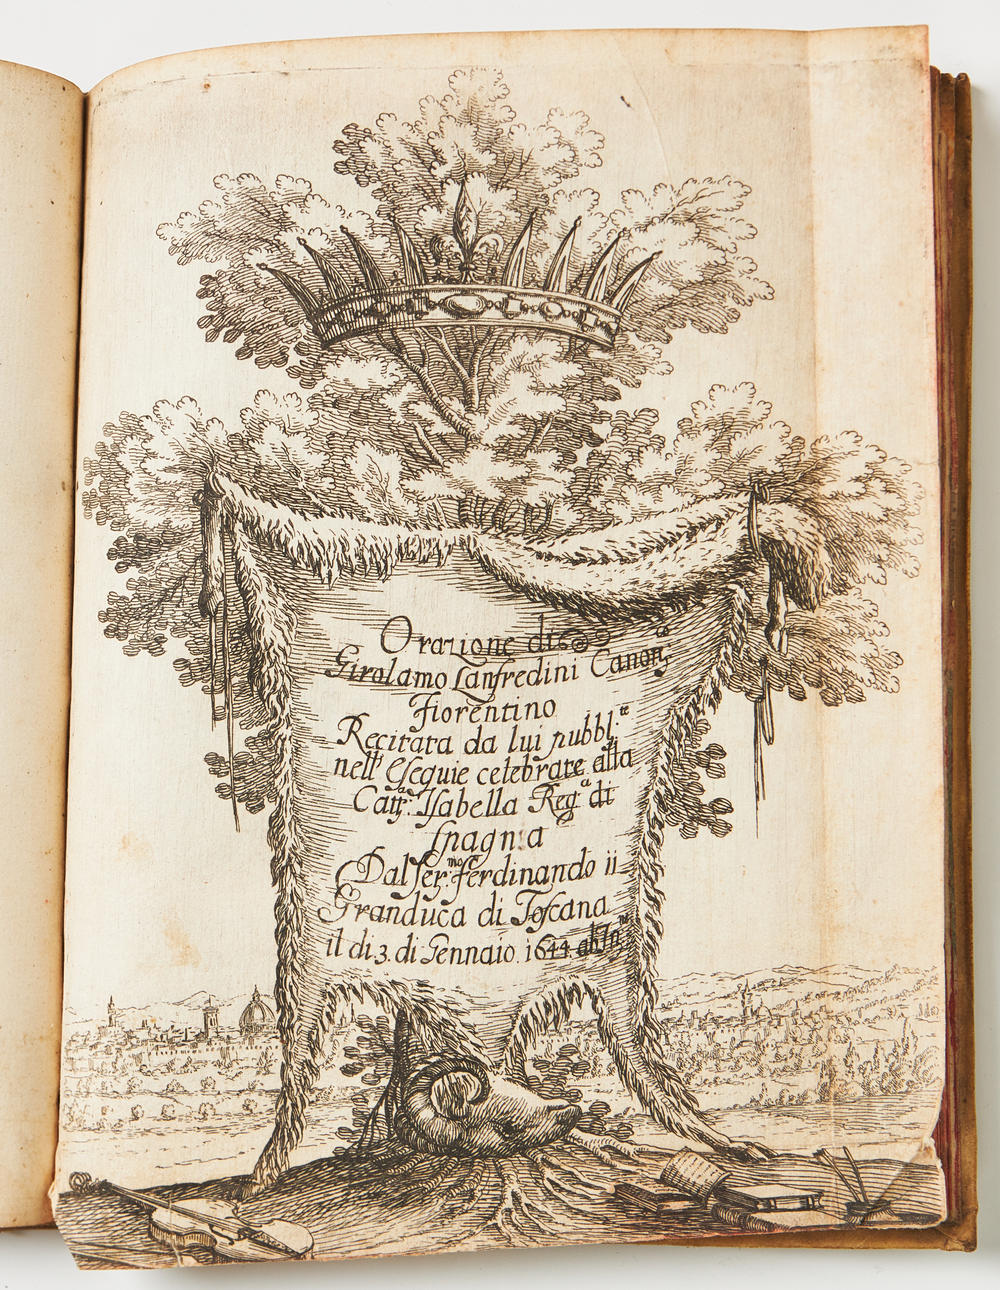 Orazione di
Girolamo Lanfredini Canon.co
Fiorentino
Recitata da lui pubbl.te
nell'Esequie celebrate alla
Catt.ca Isabella Reg.a di
Spagnia
Dal Ser.mo Ferdinando ii
Granduca di Toscana
il di 3. di Gennaio. 1644. ab In.ne